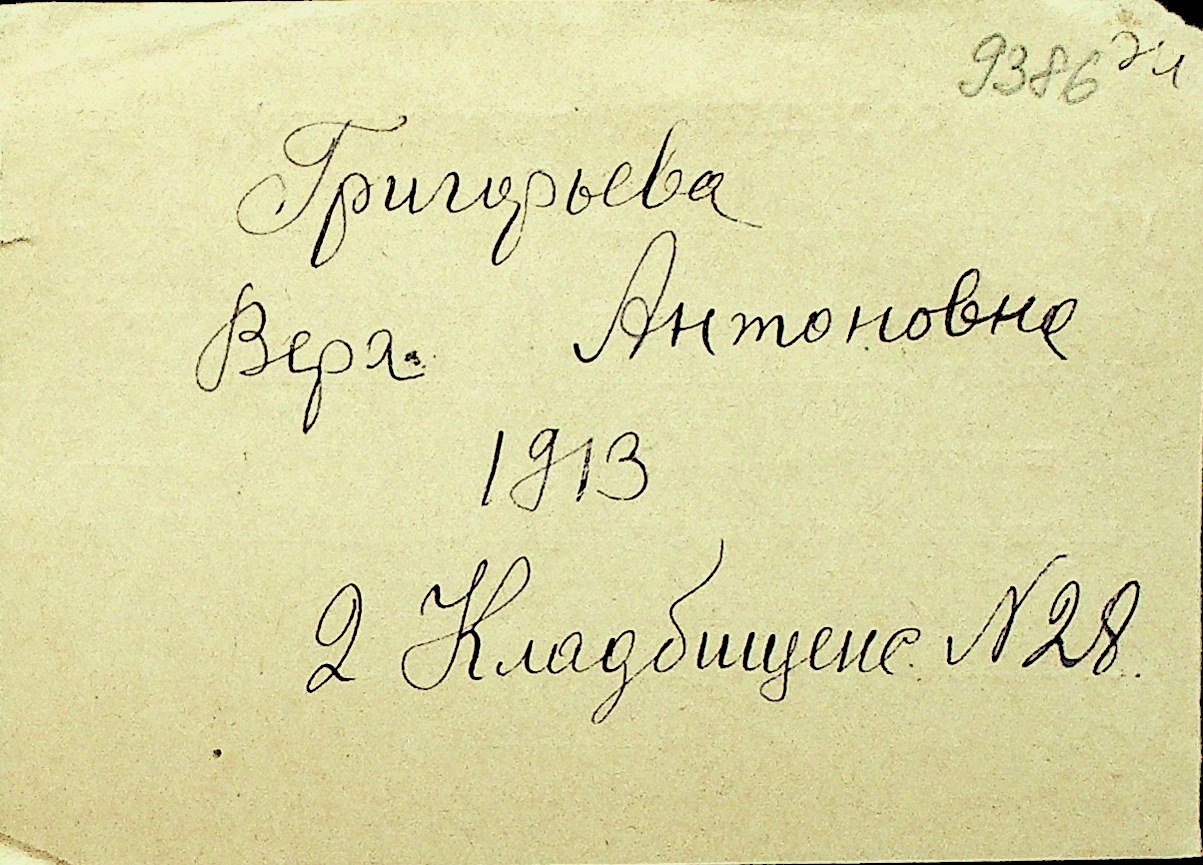 9386 эл
Григорьева
Вера Антоновна
1913
2 Кладбищенс. N28.